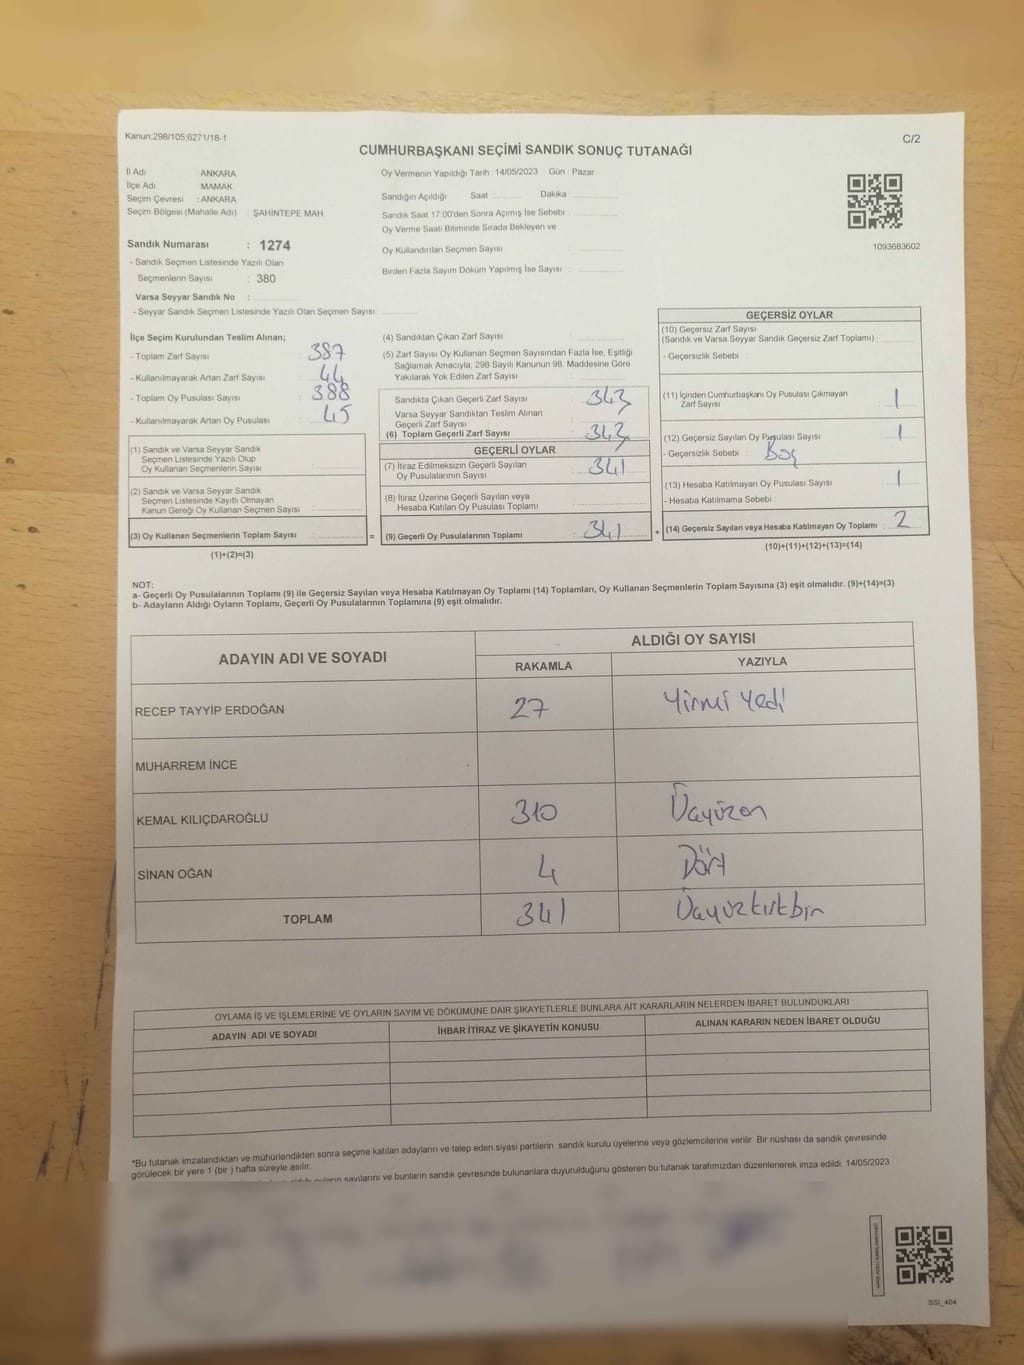 Kanun:298/105;6271/18-1
C/2
CUMHURBAŞKANI SEÇİMİ SANDIK SONUÇ TUTANAĞI
İl Adı ANKARA
İlçe Adı MAMAK
Seçim Çevresi : ANKARA
Seçim Bölgesi (Mahalle Adı) ŞAHİNTEPE MAH.
Sandık Numarası : 1274
- Sandık Seçmen Listesinde Yazılı Olan
Seçmenlerin Sayısı : 380
Varsa Seyyar Sandık No :
- Seyyar Sandık Seçmen Listesinde Yazılı Olan Seçmen Sayısı
Oy Vermenin Yapıldığı Tarih : 14/05/2023 Gün : Pazar
Sandığın Açıldığı Saat Dakika
Sandık Saat 17:00'den Sonra Açımış İse Sebebi
Oy Verme Saati Bitiminde Sırada Bekleyen ve
Oy Kullandırılan Seçmen Sayısı
Birden Fazla Sayım Döküm Yapılmış İse Sayısı
1093683602
İlçe Seçim Kurulundan Teslim Alınan;
- Toplam Zarf Sayısı : 387
- Kullanılmayarak Artan Zarf Sayısı : 44
- Toplam Oy Pusulası Sayısı : 388
- Kullanılmayarak Artan Oy Pusulası : 45
(1) Sandık ve Varsa Seyyar Sandık
Seçmen Listesinde Yazılı Olup
Oy Kullanan Seçmenlerin Sayısı
(2) Sandık ve Varsa Seyyar Sandık
Seçmen Listesinde Kayıtlı Olmayan
Kanun Gereği Oy Kullanan Seçmen Sayısı
(3) Oy Kullanan Seçmenlerin Toplam Sayısı =
(1)+(2)=(3)
(4) Sandıktan Çıkan Zarf Sayısı
(5) Zarf Sayısı Oy Kullanan Seçmen Sayısından Fazla İse, Eşitliği
Sağlamak Amacıyla; 298 Sayılı Kanunun 98. Maddesine Göre
Yakılarak Yok Edilen Zarf Sayısı
Sandıkta Çıkan Geçerli Zarf Sayısı 343
Varsa Seyyar Sandıktan Teslim Alınan
Geçerli Zarf Sayısı
(6) Toplam Geçerli Zarf Sayısı 343
GEÇERLİ OYLAR
(7) İtiraz Edilmeksizin Geçerli Sayılan
Oy Pusulalarının Sayısı 341
(8) İtiraz Üzerine Geçerli Sayılan veya
Hesaba Katılan Oy Pusulası Toplamı
(9) Geçerli Oy Pusulalarının Toplamı 341 +
GEÇERSİZ OYLAR
(10) Geçersiz Zarf Sayısı
(Sandık ve Varsa Seyyar Sandık Geçersiz Zarf Toplamı) :
- Geçersizlik Sebebi
(11) İçinden Cumhurbaşkanı Oy Pusulası Çıkmayan
Zarf Sayısı 1
(12) Geçersiz Sayılan Oy Pusulası Sayısı 1
- Geçersizlik Sebebi : Boş
(13) Hesaba Katılmayan Oy Pusulası Sayısı 1
- Hesaba Katılmama Sebebi
(14) Geçersiz Sayılan veya Hesaba Katılmayan Oy Toplamı : 2
(10)+(11)+(12)+(13)=(14)
NOT:
a- Geçerli Oy Pusulalarının Toplamı (9) ile Geçersiz Sayılan veya Hesaba Katılmayan Oy Toplamı (14) Toplamları, Oy Kullanan Seçmenlerin Toplam Sayısına (3) eşit olmalıdır. (9)+(14)=(3)
b- Adayların Aldığı Oyların Toplamı, Geçerli Oy Pusulalarının Toplamına (9) eşit olmalıdır.
ADAYIN ADI VE SOYADI
ALDIĞI OY SAYISI
RAKAMLA YAZIYLA
RECEP TAYYİP ERDOĞAN 27 Yirmi Yedi
MUHARREM İNCE
KEMAL KILIÇDAROĞLU 310 Üçyüzon
SİNAN OĞAN 4 Dört
TOPLAM 341 Üçyüzkırkbir
OYLAMA İŞ VE İŞLEMLERİNE VE OYLARIN SAYIM VE DÖKÜMÜNE DAİR ŞİKAYETLERLE BUNLARA AİT KARARLARIN NELERDEN İBARET BULUNDUKLARI
ADAYIN ADI VE SOYADI İHBAR İTİRAZ VE ŞİKAYETİN KONUSU ALINAN KARARIN NEDEN İBARET OLDUĞU
*Bu tutanak imzalandıktan ve mühürlendikten sonra seçime katılan adayların ve talep eden siyasi partilerin sandık kurulu üyelerine veya gözlemcilerine verilir. Bir nüshası da sandık çevresinde
görülecek bir yere 1 (bir ) hafta süreyle asılır.
oyların sayılarını ve bunların sandık çevresinde bulunanlara duyurulduğunu gösteren bu tutanak tarafımızdan düzenlenerek imza edildi. 14/05/2023
SSI_404